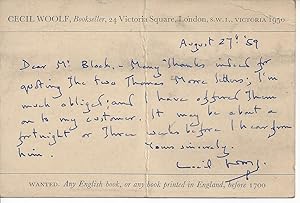 CECIL WOOLF, Bookseller, 24 Victoria Square, London, S.W.1., VICTORIA 1950
August 27th '59
Dear Mr Block, – Many thanks indeed for
posting the two Thomas Moore letters; I'm
much obliged; and I have offered them
on to my customer. It may be about a
fortnight or three weeks before I hear from
him.
Yours sincerely,
Cecil Woolf.
WANTED. Any English book, or any book printed in England, before 1700